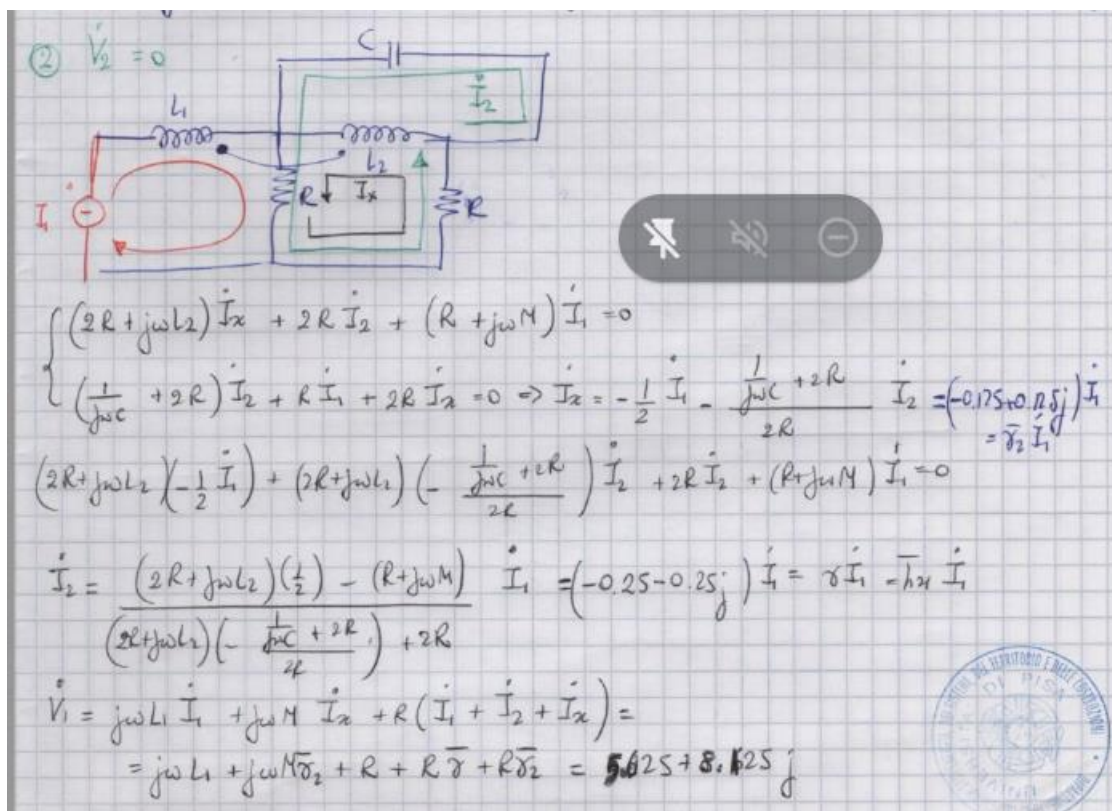 ② V̇₂ = 0
C
İ₂
L₁
L₂
I₁
R
Iₓ
R
(2R + jωL₂) İₓ + 2R İ₂ + (R + jωM) İ₁ = 0
(1/jωC + 2R) İ₂ + R İ₁ + 2R İₓ = 0 ⇒ İₓ = -1/2 İ₁ - (1/jωC + 2R)/2R İ₂ = (-0.175+0.125j) İ₁
= γ̄₂ İ₁
(2R + jωL₂)(-1/2 İ₁) + (2R + jωL₂)(-(1/jωC + 2R)/2R) İ₂ + 2R İ₂ + (R + jωM) İ₁ = 0
İ₂ = ((2R + jωL₂)(1/2) - (R + jωM))/((2R + jωL₂)(-(1/jωC + 2R)/2R) + 2R) İ₁ = (-0.25-0.25j) İ₁ = γ İ₁ = h̄₂₁ İ₁
V̇₁ = jωL₁ İ₁ + jωM İₓ + R (İ₁ + İ₂ + İₓ) =
= jωL₁ + jωM γ̄₂ + R + R γ̄ + R γ̄₂ = 5.625 + 8.125 j
DI PISA